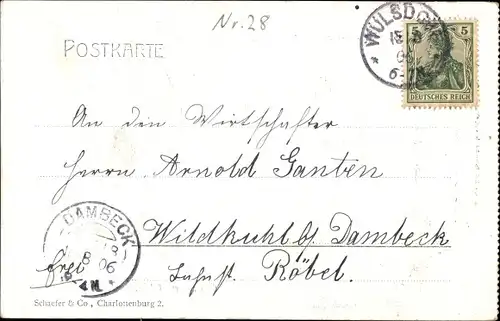 Nr. 28
WULSDO
5 5
DEUTSCHES REICH
POSTKARTE
An den Wirtschafter
Herrn Arnold Ganten
Wildkuhl b/ Dambeck
frei Bahnst. Röbel.
DAMBECK
8 06
Schaefer & Co., Charlottenburg 2.